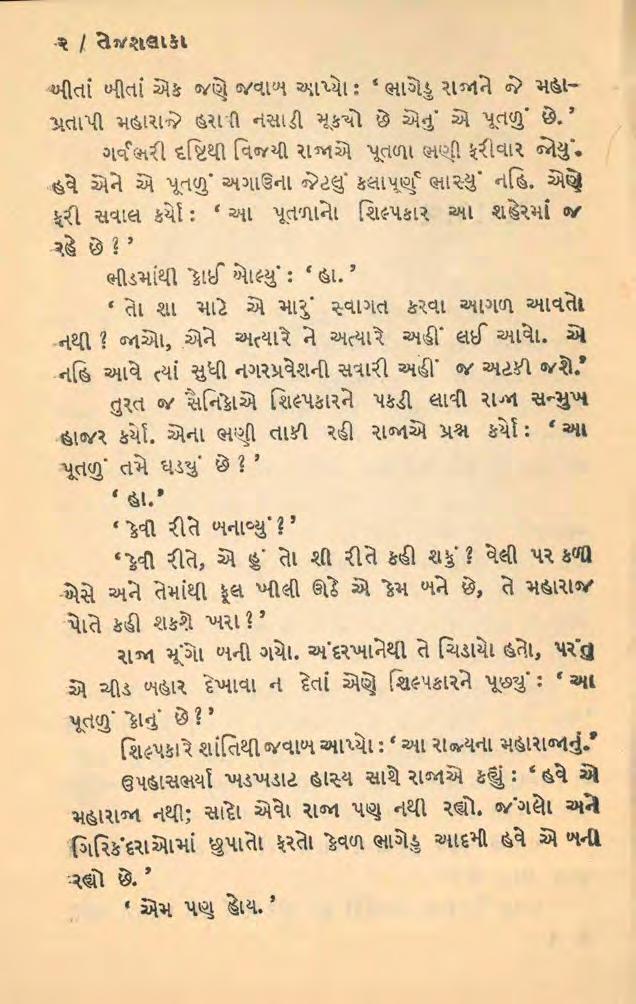 ૨ / તેજશલાકા
બીતાં બીતાં એક જણે જવાબ આપ્યો : ‘ ભાગેડુ રાજાને જે મહા-
પ્રતાપી મહારાજે હરાવી નસાડી મૂક્યો છે એનું એ પૂતળું છે. ’
ગર્વભરી દૃષ્ટિથી વિજયી રાજાએ પૂતળા ભણી ફરીવાર જોયું.
હવે એને એ પૂતળું અગાઉના જેટલું કલાપૂર્ણ ભાસ્યું નહિ. એણે
ફરી સવાલ કર્યો : ‘ આ પૂતળાનો શિલ્પકાર આ શહેરમાં જ
રહે છે ? ’
ભીડમાંથી કોઈ બોલ્યું : ‘ હા. ’
‘ તો શા માટે એ મારું સ્વાગત કરવા આગળ આવતો
નથી ? જાઓ, એને અત્યારે ને અત્યારે અહીં લઈ આવો. એ
નહિ આવે ત્યાં સુધી નગરપ્રવેશની સવારી અહીં જ અટકી જશે.’
તુરત જ સૈનિકોએ શિલ્પકારને પકડી લાવી રાજા સન્મુખ
હાજર કર્યો. એના ભણી તાકી રહી રાજાએ પ્રશ્ન કર્યો : ‘ આ
પૂતળું તમે ઘડ્યું છે ? ’
‘ હા.’
‘ કેવી રીતે બનાવ્યું ? ’
‘ કેવી રીતે, એ હું તો શી રીતે કહી શકું ? વેલી પર કળી
બેસે અને તેમાંથી ફૂલ ખીલી ઊઠે એ કેમ બને છે, તે મહારાજ
પોતે કહી શકશે ખરા ? ’
રાજા મૂંગો બની ગયો. અંદરખાનેથી તે ચિડાયો હતો, પરંતુ
એ ચીડ બહાર દેખાવા ન દેતાં એણે શિલ્પકારને પૂછ્યું : ‘ આ
પૂતળું કોનું છે ? ’
શિલ્પકારે શાંતિથી જવાબ આપ્યો : ‘ આ રાજ્યના મહારાજાનું.’
ઉપહાસભર્યા ખડખડાટ હાસ્ય સાથે રાજાએ કહ્યું : ‘ હવે એ
મહારાજા નથી; સાદો એવો રાજા પણ નથી રહ્યો. જંગલો અને
ગિરિકંદરાઓમાં છુપાતો ફરતો કેવળ ભાગેડુ આદમી હવે એ બની
રહ્યો છે. ’
‘ એમ પણ હોય. ’